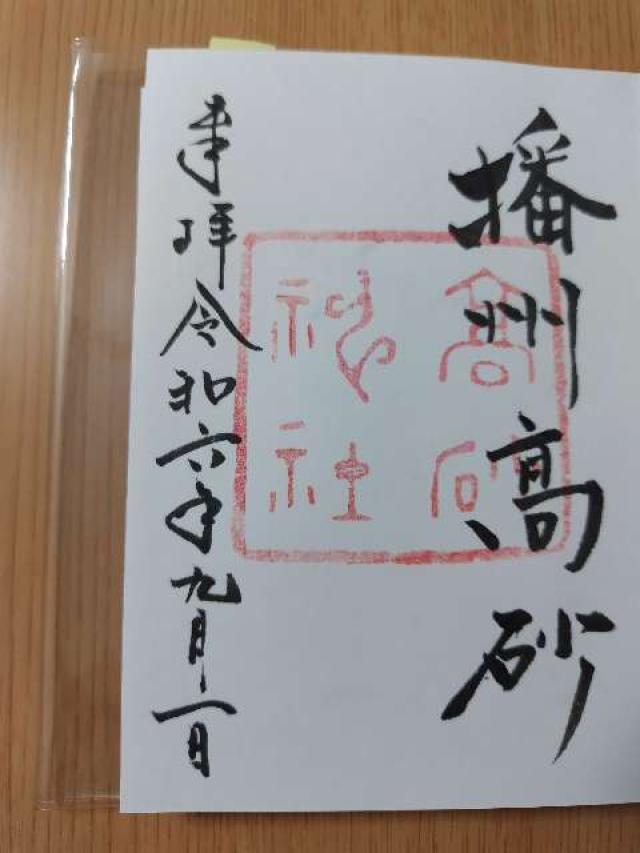 播州高砂
高砂
神社
奉拝 令和六年九月一日